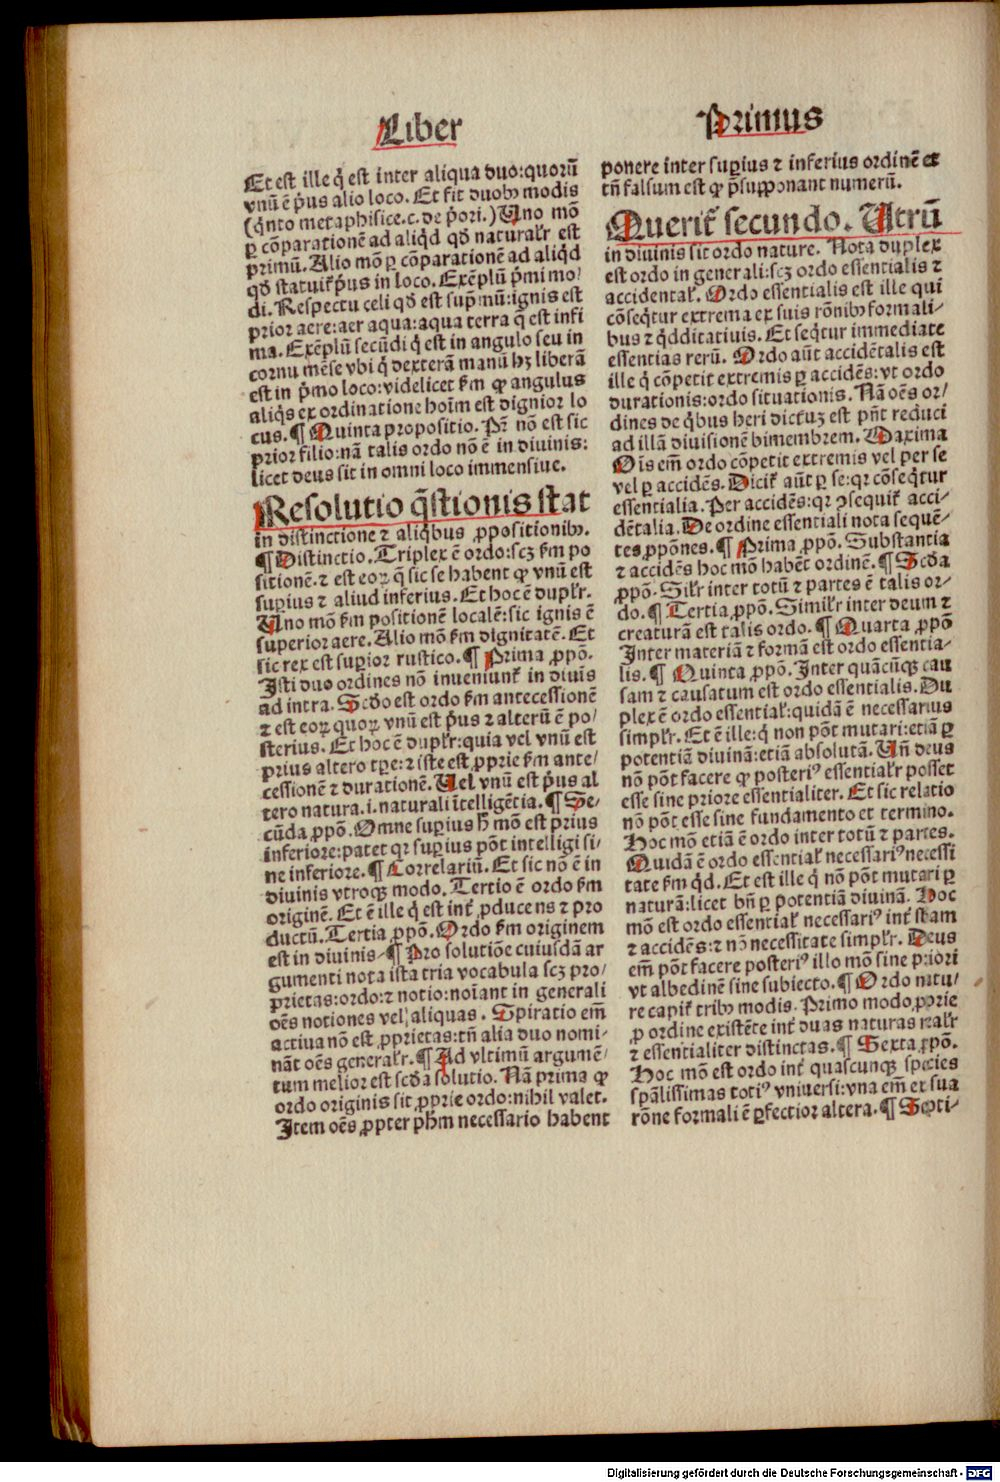 Liber
Et est ille q̇ est inter aliqua duo:quorū
vnū ē p̄us alio loco. Et fit duobꝰ modis
(q̇nto metaphisice.c. de p̄ori.) Uno mō
ꝑ cōparationē ad aliqd qd naturalr est
primū. Alio mō ꝑ cōparationē ad aliqd
qd statuit̄ p̄us in loco. Exēplū p̄mi mo/
di. Respectu celi qd est sup̄mū:ignis est
prior aere:aer aqua:aqua terra q̄ est infi
ma. Exēplū secūdi q̇ est in angulo seu in
cornu mēse vbi q̇ dexterā manū hꝫ liberā
est in p̄mo loco:videlicet ẜm ꝙ angulus
aliq̇s ex ordinatione hoīm est dignior lo
cus. ¶ Quinta propositio. Pr̄ nō est sic
prior filio:nā talis ordo nō ē in diuinis:
licet deus sit in omni loco immensiue.
Resolutio q̄stionis stat
in distinctione ⁊ aliq̇bus ꝓpositionibꝰ.
¶ Distinctio. Triplex ē ordo:scꝫ ẜm po
sitionē. ⁊ est eoꝝ q̄ sic se habent ꝙ vnū est
suꝑius ⁊ aliud inferius. Et hoc ē duplr.
Uno mō ẜm positionē localē:sic ignis ē
superior aere. Alio mō ẜm dignitatē. Et
sic rex est suꝑior rustico. ¶ Prima ꝓpō.
Isti duo ordines nō inueniunt̄ in diuīs
ad intra. Scdo est ordo ẜm antecessionē
⁊ est eoꝝ quoꝝ vnū est p̄us ⁊ alterū ē po/
sterius. Et hoc ē duplr:quia vel vnū est
prius altero tꝑe:⁊ iste est ꝓprie ẜm ante/
cessionē ⁊ durationē. Uel vnū est p̄us al
tero natura.i. naturali ītelligētia. ¶ Se/
cūda ꝓpō. Omne suꝑius h̄ mō est prius
inferiore:patet qꝛ suꝑius pōt intelligi si/
ne inferiore. ¶ Correlariū. Et sic nō ē in
diuinis vtroqꝫ modo. Tertio ē ordo ẜm
originē. Et ē ille q̇ est int̄ ꝓducens ⁊ pro
ductū. Tertia ꝓpō. Ordo ẜm originem
est in diuinis. ¶ Pro solutiōe cuiusdā ar
gumenti nota ista tria vocabula scꝫ pro/
prietas:ordo:⁊ notio:noīant in generali
oēs notiones vel aliquas. Spiratio em̄
actiua nō est ꝓprietas:tn̄ alia duo nomi-
nāt oēs generalr. ¶ Ad vltimū argumē/
tum melior est scda solutio. Nā prima ꝙ
ordo originis sit ꝓprie ordo:nihil valet.
Item oēs ꝓpter phm necessario habent
Primus
ponere inter suꝑius ⁊ inferius ordinē et
tn̄ falsum est ꝙ p̄supponant numerū.
Querit̄ secundo. Utrū
in diuinis sit ordo nature. Nota duplex
est ordo in generali:scꝫ ordo essentialis ⁊
accidental. Ordo essentialis est ille qui
cōseq̇tur extrema ex suis rōnibꝰ formali-
bus ⁊ q̇dditatiuis. Et seq̇tur immediate
essentias rerū. Ordo aūt accidētalis est
ille q̇ cōpetit extremis ꝑ accidēs:vt ordo
durationis:ordo situationis. Nā oēs or/
dines de q̇bus heri dictuꝫ est pn̄t reduci
ad illā diuisionē bimembrem. Maxima
Oīs em̄ ordo cōpetit extremis vel per se
vel ꝑ accidēs. Dicit̄ aūt ꝑ se:qꝛ cōseq̇tur
essentialia. Per accidēs:qꝛ ꝯsequit̄ acci-
dētalia. De ordine essentiali nota sequē-
tes ꝓpōnes. ¶ Prima ꝓpō. Substantia
⁊ accidēs hoc mō habēt ordinē. ¶ Scda
ꝓpō. Silr inter totū ⁊ partes ē talis or-
do. ¶ Tertia ꝓpō. Similr inter deum ⁊
creaturā est talis ordo. ¶ Quarta ꝓpō
Inter materiā ⁊ formā est ordo essentia-
lis. ¶ Quinta ꝓpō. Inter quācūqꝫ cau
sam ⁊ causatum est ordo essentialis. Du
plex ē ordo essential:quidā ē necessarius
simplr. Et ē ille:q̇ non pōt mutari:etiā ꝑ
potentiā diuinā:etiā absolutā. Un̄ deus
nō pōt facere ꝙ posteriꝰ essentialr posset
esse sine priore essentialiter. Et sic relatio
nō pōt esse sine fundamento et termino.
Hoc mō etiā ē ordo inter totū ⁊ partes.
Quidā ē ordo essential necessariꝰ necessi
tate ẜm q̇d. Et est ille q̇ nō pōt mutari ꝑ
naturā:licet bn̄ ꝑ potentiā diuinā. Hoc
mō est ordo essential necessariꝰ int̄ sbam
⁊ accidēs:⁊ nō necessitate simplr. Deus
em̄ pōt facere posteriꝰ illo mō sine priori
vt albedinē sine subiecto. ¶ Ordo natu/
re capit̄ tribꝰ modis. Primo modo ꝓprie
ꝓ ordine existēte int̄ duas naturas realr
⁊ essentialiter distinctas. ¶ Sexta ꝓpō.
Hoc mō est ordo int̄ quascunqꝫ species
spālissimas totiꝰ vniuersi:vna em̄ ex sua
rōne formali ē ꝑfectior altera. ¶ Septi-
Digitalisierung gefördert durch die Deutsche Forschungsgemeinschaft - DFG